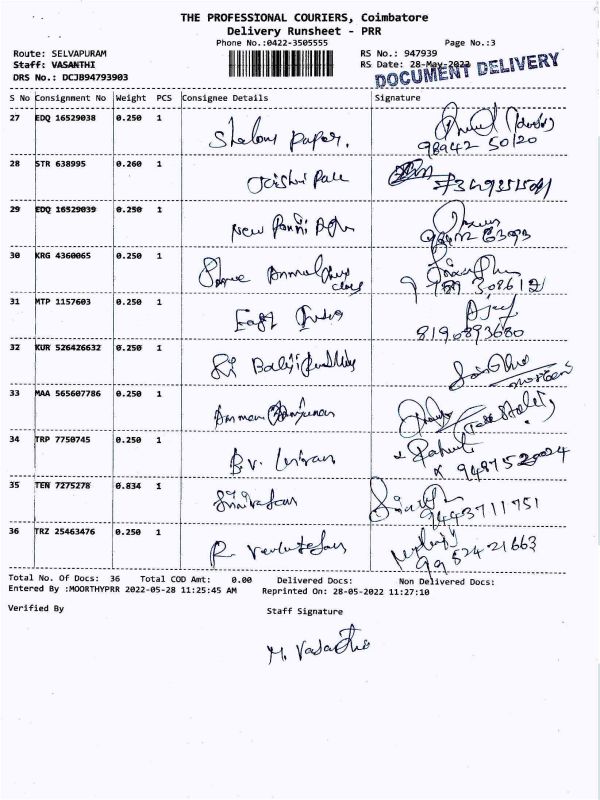 THE PROFESSIONAL COURIERS, Coimbatore
Delivery Runsheet - PRR
Phone No.:0422-3505555 Page No.:3
Route: SELVAPURAM RS No.: 947939
Staff: VASANTHI RS Date: 28-May-2022
DOCUMENT DELIVERY
DRS No.: DCJB94793903
S No Consignment No Weight PCS Consignee Details Signature
27 EDQ 16529038 0.250 1 Shalom paper.
98942 50120
28 STR 638995 0.260 1
29 EDQ 16529039 0.250 1 New
30 KRG 4360065 0.250 1
31 MTP 1157603 0.250 1 East India Ajay
8190893680
32 KUR 526426632 0.250 1 Sri Balaji
33 MAA 565607786 0.250 1 Amman
34 TRP 7750745 0.250 1 B.V.
35 TEN 7275278 0.834 1
9443711751
36 TRZ 25463476 0.250 1 R.
9952421663
Total No. Of Docs: 36 Total COD Amt: 0.00 Delivered Docs: Non Delivered Docs:
Entered By :MOORTHYPRR 2022-05-28 11:25:45 AM Reprinted On: 28-05-2022 11:27:10
Verified By Staff Signature
M. Vasantha